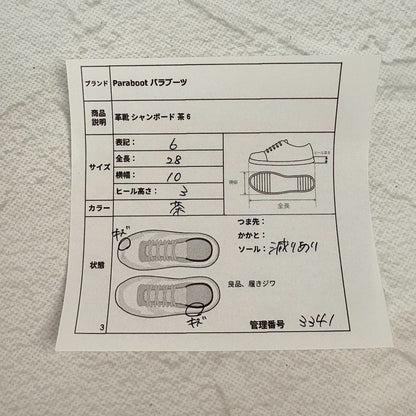 ブランド Paraboot パラブーツ
商品説明 革靴 シャンボード 茶 6
サイズ
表記: 6
全長: 28
横幅: 10
ヒール高さ: 3
ヒール高さ
横幅
全長
カラー 茶
状態
キズ
キズ
つま先:
かかと:
ソール: 減りあり
良品、履きジワ
3
管理番号 3341